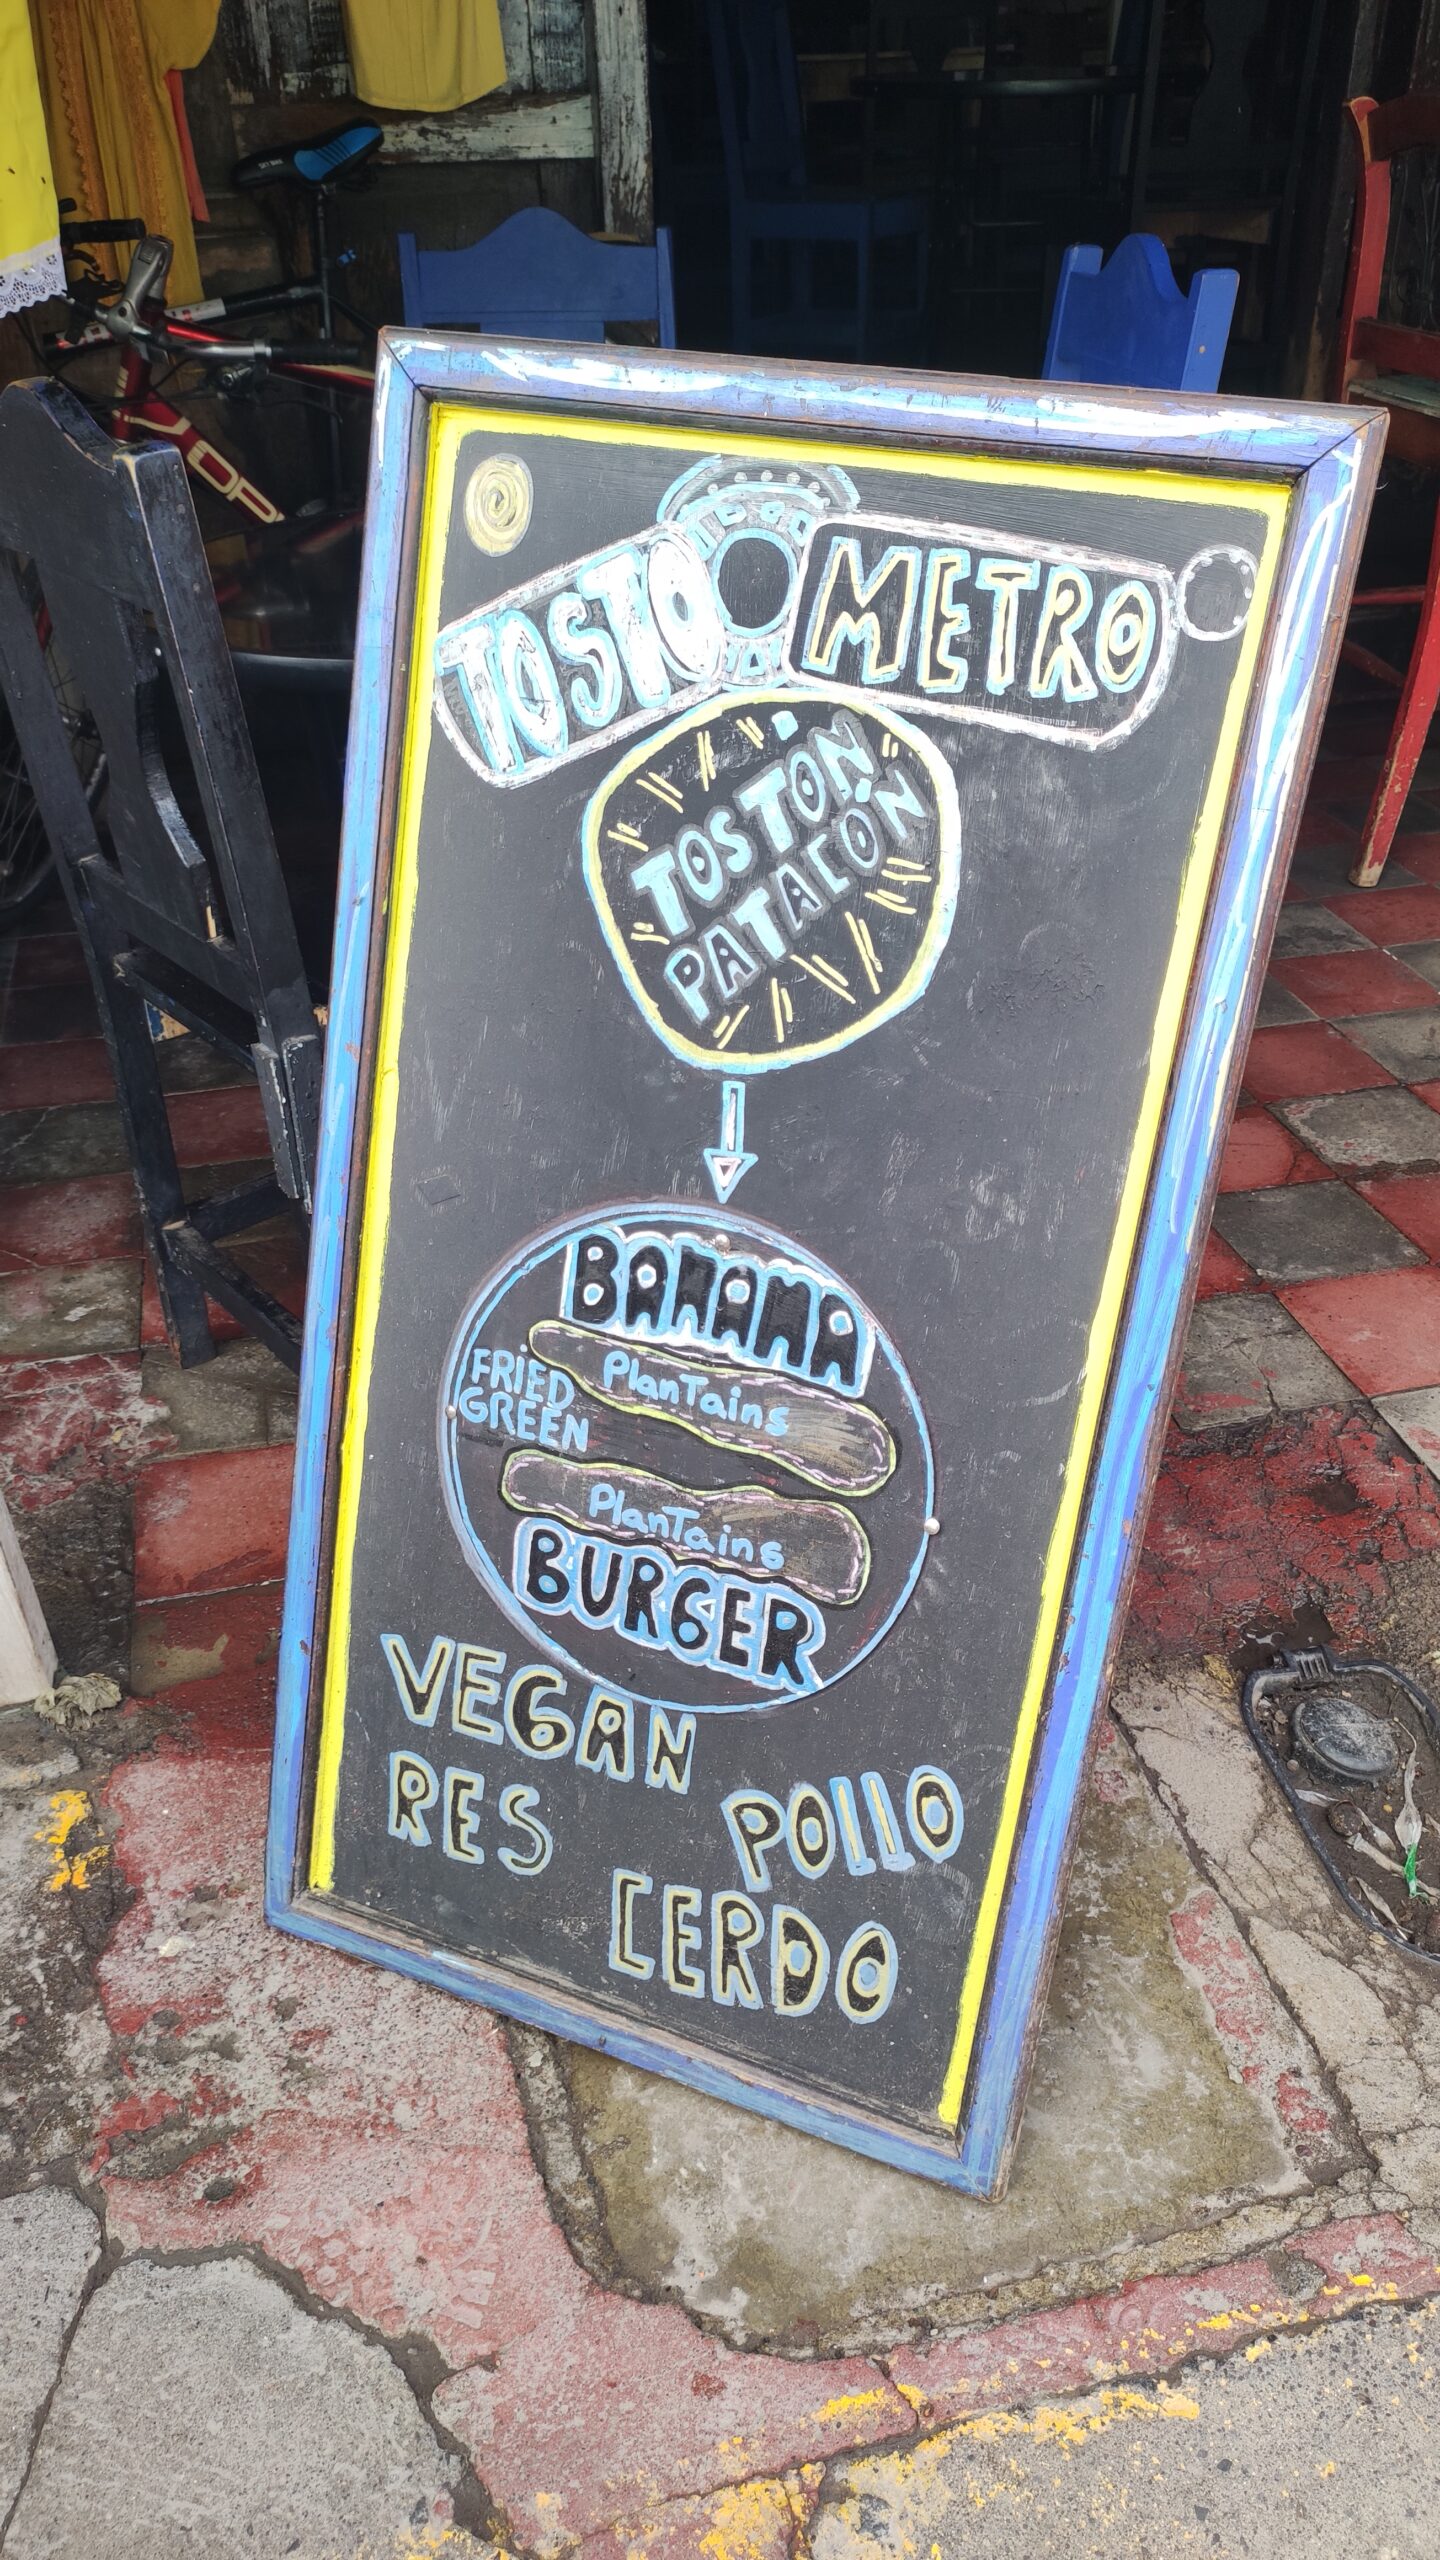 TOSTO METRO
TOSTÓN
PATACÓN
BANANA
PlanTains
FRiED
GREEN
PlanTains
BURGER
VEGAN
RES
POllO
CERDO